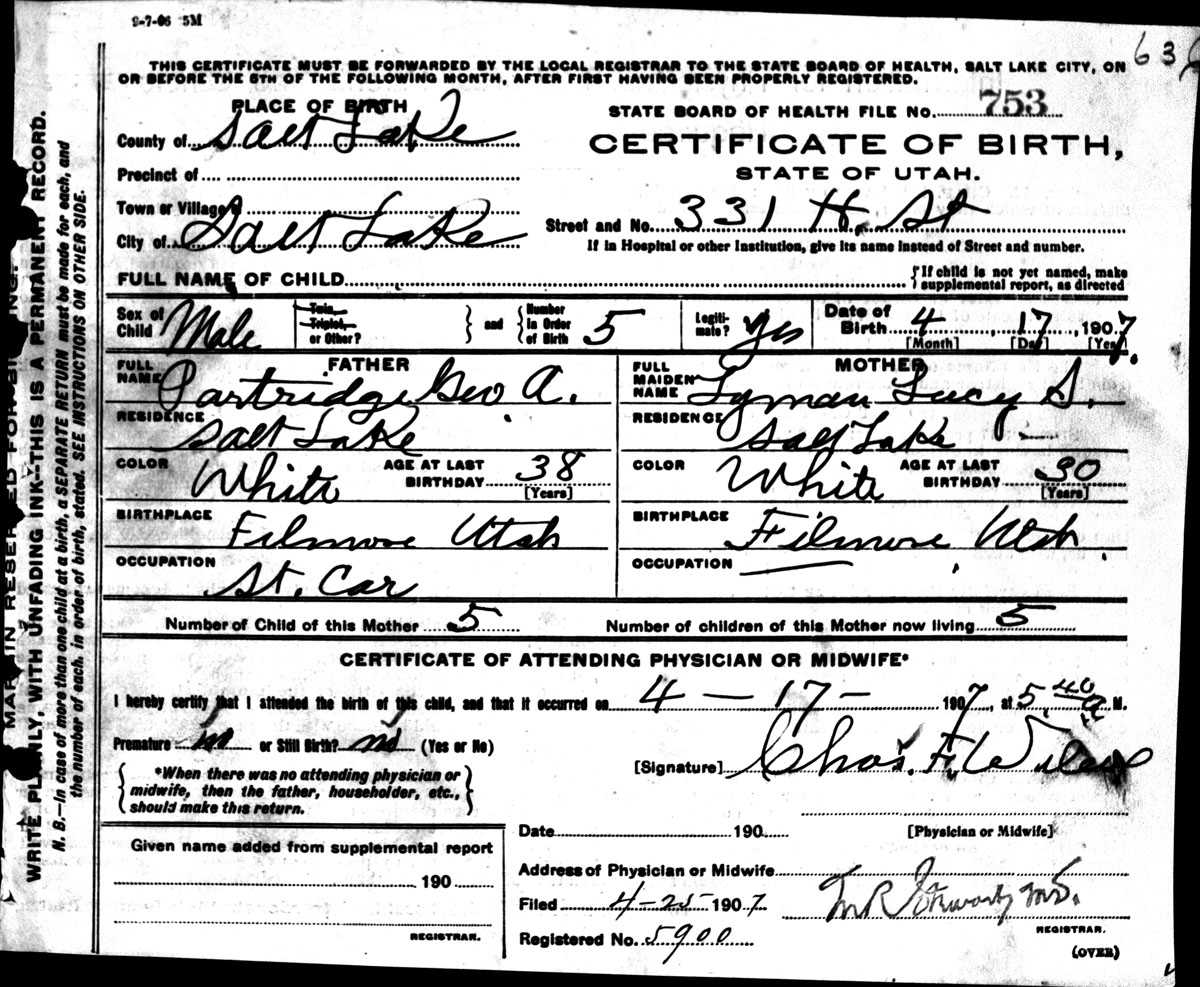 9-7-06 5M
636
THIS CERTIFICATE MUST BE FORWARDED BY THE LOCAL REGISTRAR TO THE STATE BOARD OF HEALTH, SALT LAKE CITY, ON
OR BEFORE THE 5TH OF THE FOLLOWING MONTH, AFTER FIRST HAVING BEEN PROPERLY REGISTERED.
PLACE OF BIRTH
STATE BOARD OF HEALTH FILE NO. 753
County of Salt Lake
CERTIFICATE OF BIRTH,
Precinct of
STATE OF UTAH.
Town or Village
Street and No. 331 H. St
City of Salt Lake
If in Hospital or other Institution, give its name instead of Street and number.
FULL NAME OF CHILD
{If child is not yet named, make supplemental report, as directed
Sex of Child Male Twin, Triplet, or Other? } and { Number in Order of Birth 5 Legiti-mate? Yes Date of Birth 4, 17, 1907.
[Month] [Day] [Year]
FATHER
MOTHER
FULL NAME Partridge Geo A.
FULL MAIDEN NAME Lyman Lucy S.
RESIDENCE Salt Lake
RESIDENCE Salt Lake
COLOR White AGE AT LAST BIRTHDAY 38 [Years]
COLOR White AGE AT LAST BIRTHDAY 30 [Years]
BIRTHPLACE Filmore Utah
BIRTHPLACE Filmore Utah.
OCCUPATION St. Car
OCCUPATION
Number of Child of this Mother 5 Number of children of this Mother now living 5
CERTIFICATE OF ATTENDING PHYSICIAN OR MIDWIFE*
I hereby certify that I attended the birth of this child, and that it occurred on 4 - 17 - 1907, at 5.40 a M.
Premature no or Still Birth? no (Yes or No)
[Signature] Chas. F. Wilcox
{ *When there was no attending physician or
midwife, then the father, householder, etc.,
should make this return. }
Date 190
[Physician or Midwife]
Given name added from supplemental report
190
REGISTRAR.
Address of Physician or Midwife
Filed 4-25-1907
M.D.
REGISTRAR.
Registered No. 5900
(OVER)
WRITE PLAINLY, WITH UNFADING INK--THIS IS A PERMANENT RECORD.
N. B.--In case of more than one child at a birth, a SEPARATE RETURN must be made for each, and
the number of each, in order of birth, stated. SEE INSTRUCTIONS ON OTHER SIDE.